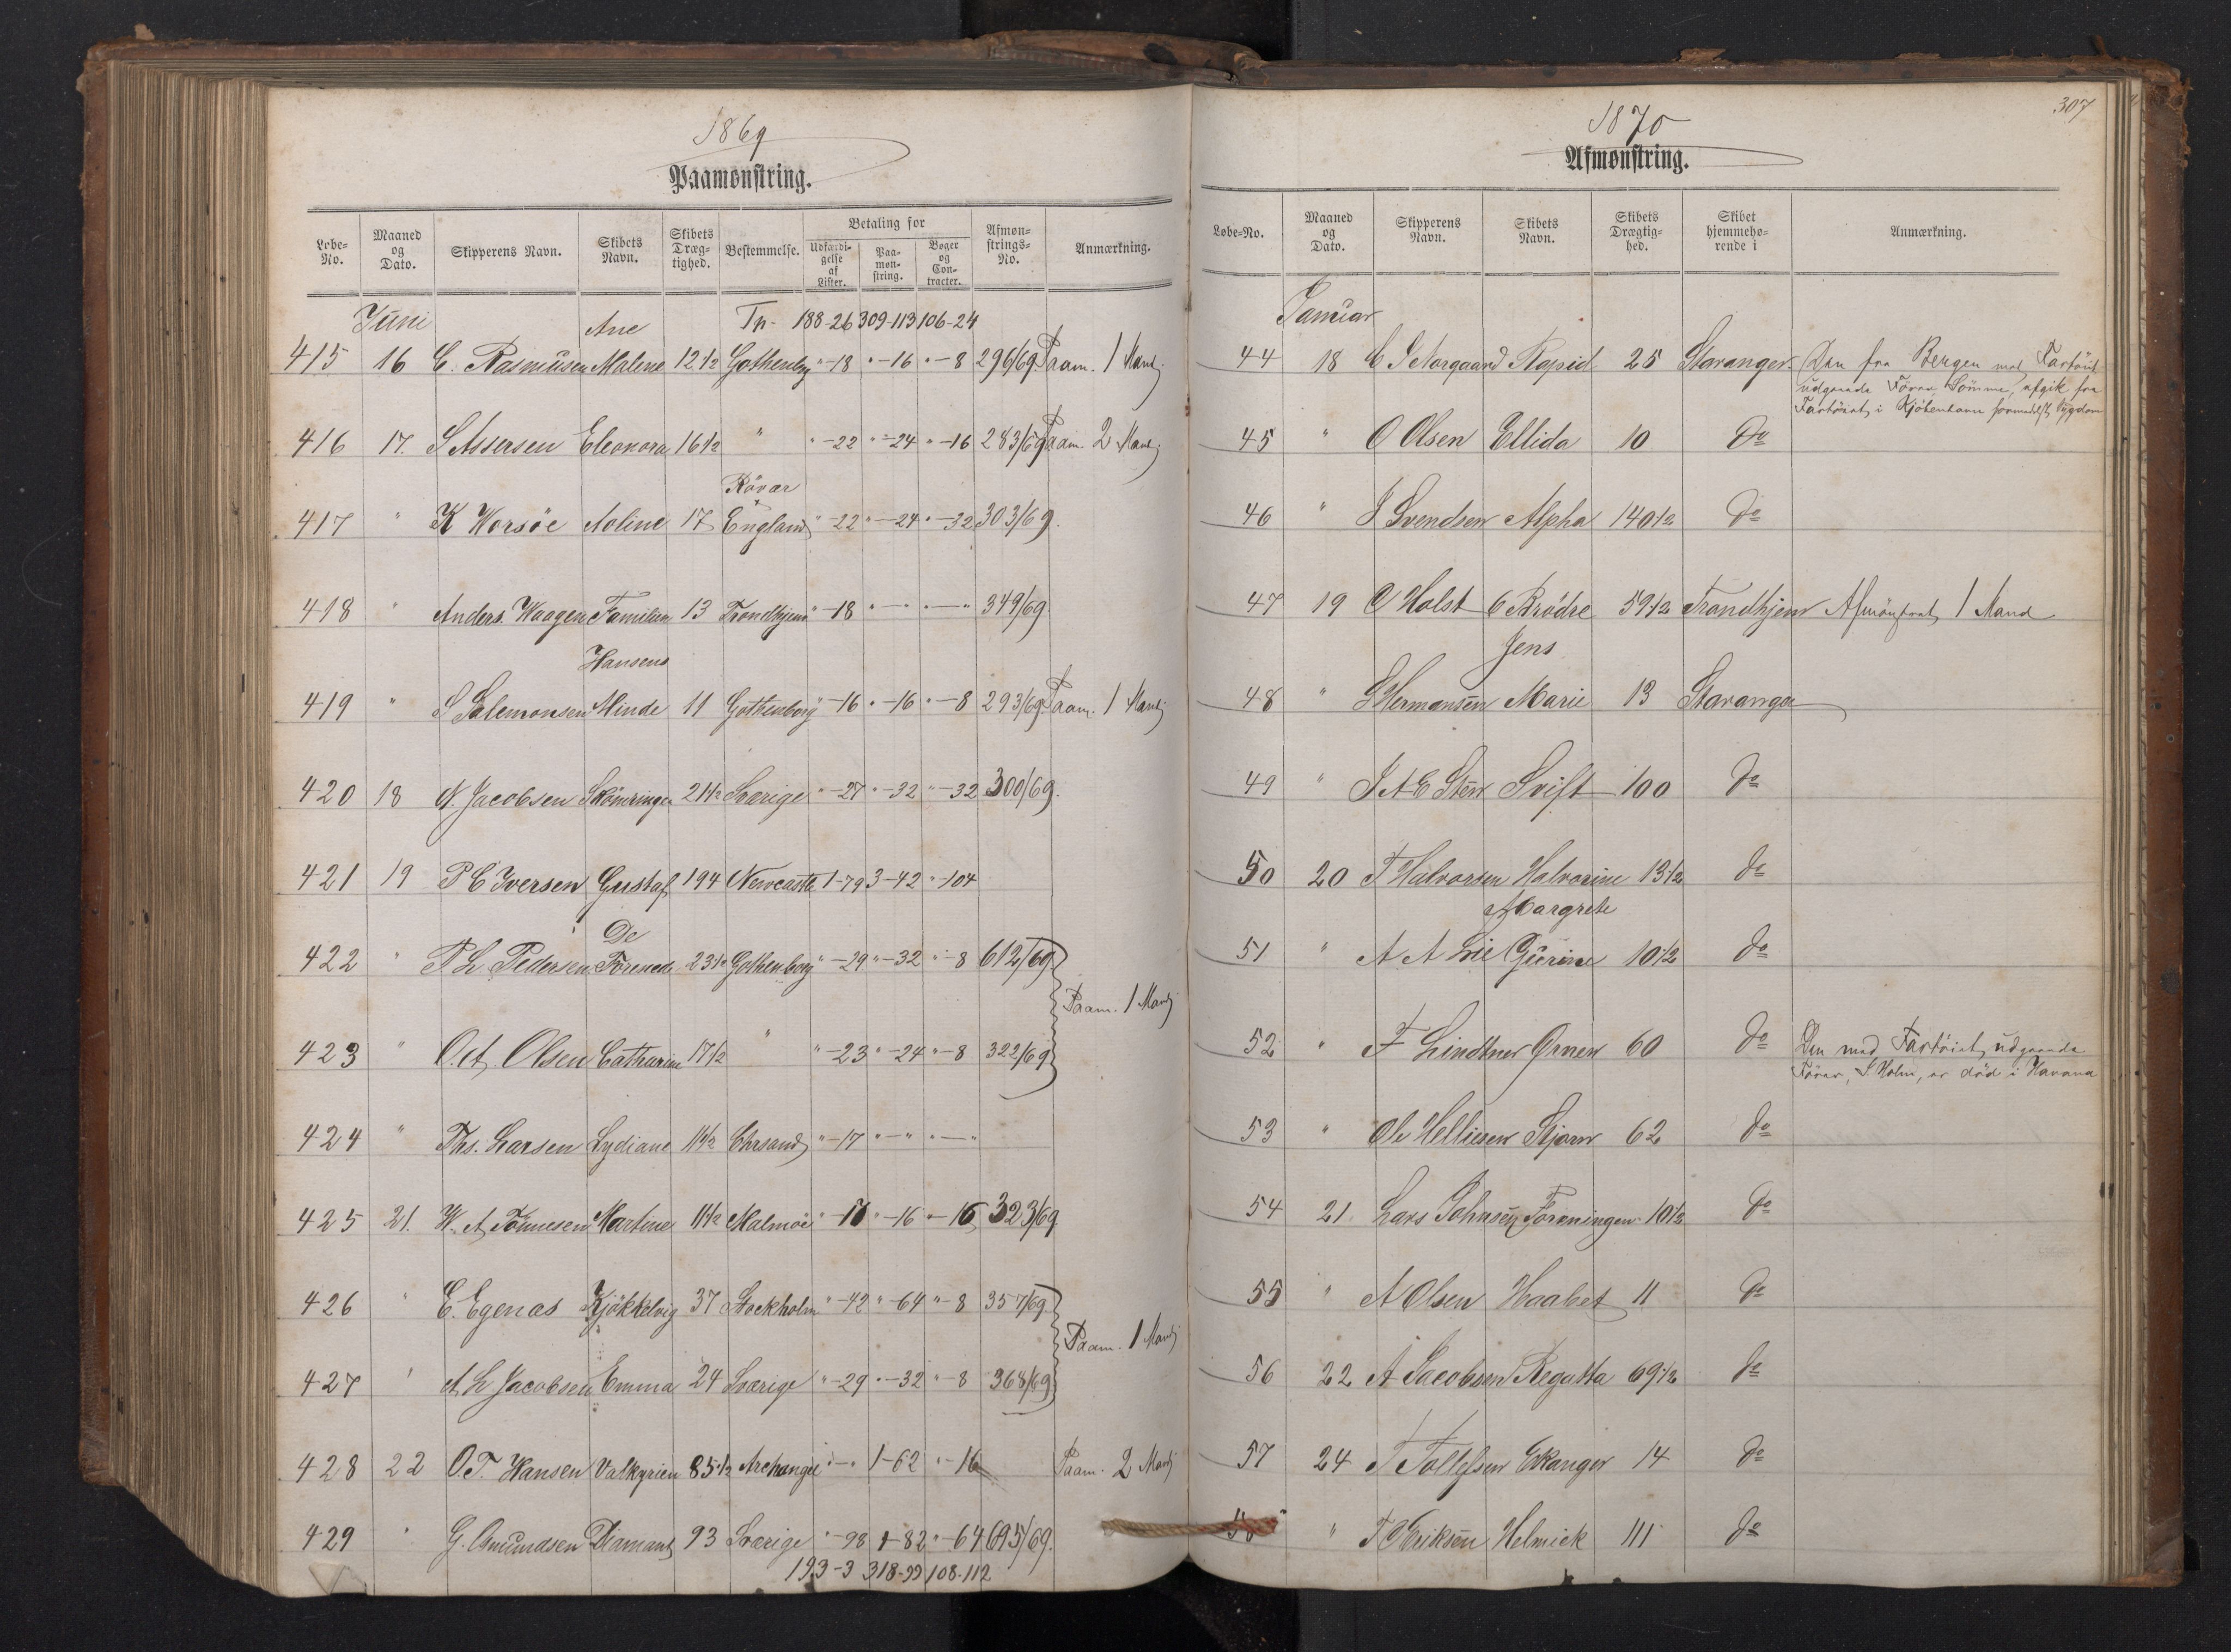 1869
Paamønstring.
Løbe-No. Maaned og Dato. Skipperens Navn. Skibets Navn. Skibets Dræg-tighed. Bestemmelse. Betaling for Udfærdi-gelse af Lister. Paa-møn-string. Bøger og Con-tracter. Afmøn-strings-No. Anmærkning.
Juni Tr. 188-26 309-113 106-24
415 16 C. Rasmusen Ane Malene 12 1/2 Gothenbg " -18 " -16 " -8 296/69 Paam. 1 Mand
416 17. S Assersen Eleonora 16 1/2 " " -22 " -24 " -16 283/69 Paam. 2 Mand
417 " K Worsöe Aoline 17 Rövær England " -22 " -24 " -32 303/69.
418 " Anders Waagen Familien 13 Trondhjem " -18 " - " " - " 349/69
419 " S Salemonsen Hansens Minde 11 Gothenborg " -16 " -16 " -8 293/69 Paam. 1 Mand
420 18 N. Jacobsen Skömringen 21 1/2 Sverige " -27 " -32 " -32 300/69.
421 19 P C Iversen Gustaf 194 Newcastle 1-79 3-42 " -104
422 " P L Pedersen De Forenede 23 1/2 Gothenborg " -29 " -32 " -8 612/69
Paam. 1 Mand
423 " O. A. Olsen Catharine 17 1/2 " " -23 " -24 " -8 322/69
424 " Ths. Larsen Lydiane 11 1/2 Chrsand " -17 " - " " - "
425 21. W. A. Tönnesen Martine 11 1/2 Malmöe " -18 " -16 " -16 323/69
426 " E. Egenæs Kjökkelvig 37 Stockholm " -42 " -64 " -8 357/69
Paam. 1 Mand
427 " A. L Jacobsen Emma 24 Sverige " -29 " -32 " -8 368/69
428 22 O. T. Hansen Valkyrien 85 1/2 Archangel " - " 1-62 " -16 Paam. 2 Mand
429 " G. Gmundsen Diamant 93 Sverige " -98 1-82 " -64 695/69.
193-3 318-99 108-112
307
1870
Afmønstring.
Løbe-No. Maaned og Dato. Skipperens Navn. Skibets Navn. Skibets Drægtig-hed. Skibet hjemmehø-rende i Anmærkning.
Januar
44 18 C S Norgaard Rapid 25 Stavanger Den fra Bergen med Fartöiet
udgaaede Förer Sömme, afgik fra
Fartöiet i Kjöbenhavn formedelst Sygdom
45 " O Olsen Ellida 10 Do
46 " J Svendsen Alpha 140 1/2 Do
47 19 C Holst 6 Brödre 59 1/2 Trondhjem Afmönstret 1 Mand
48 " G Hermansen Jens Marie 13 Stavanger
49 " J A E Sten Svift 100 Do
50 20 T Halvorsen Halvorine 13 1/2 Do
51 " A A Lie Margrete Gurine 10 1/2 Do
52 " F Lindtner Ørnen 60 Do Den med Fartöiet udgaaede
Förer, S. Holm, er död i Havana
53 " Ole Helliesen Stjern 62 Do
54 21. Lars Johnsen Foreningen 10 1/2 Do
55 " A Olsen Haabet 11 Do
56 22 A Jacobsen Regatta 69 1/2 Do
57 24 T Tollefsen Ekanger 14 Do
58 " T Eriksen Helmick 111 Do